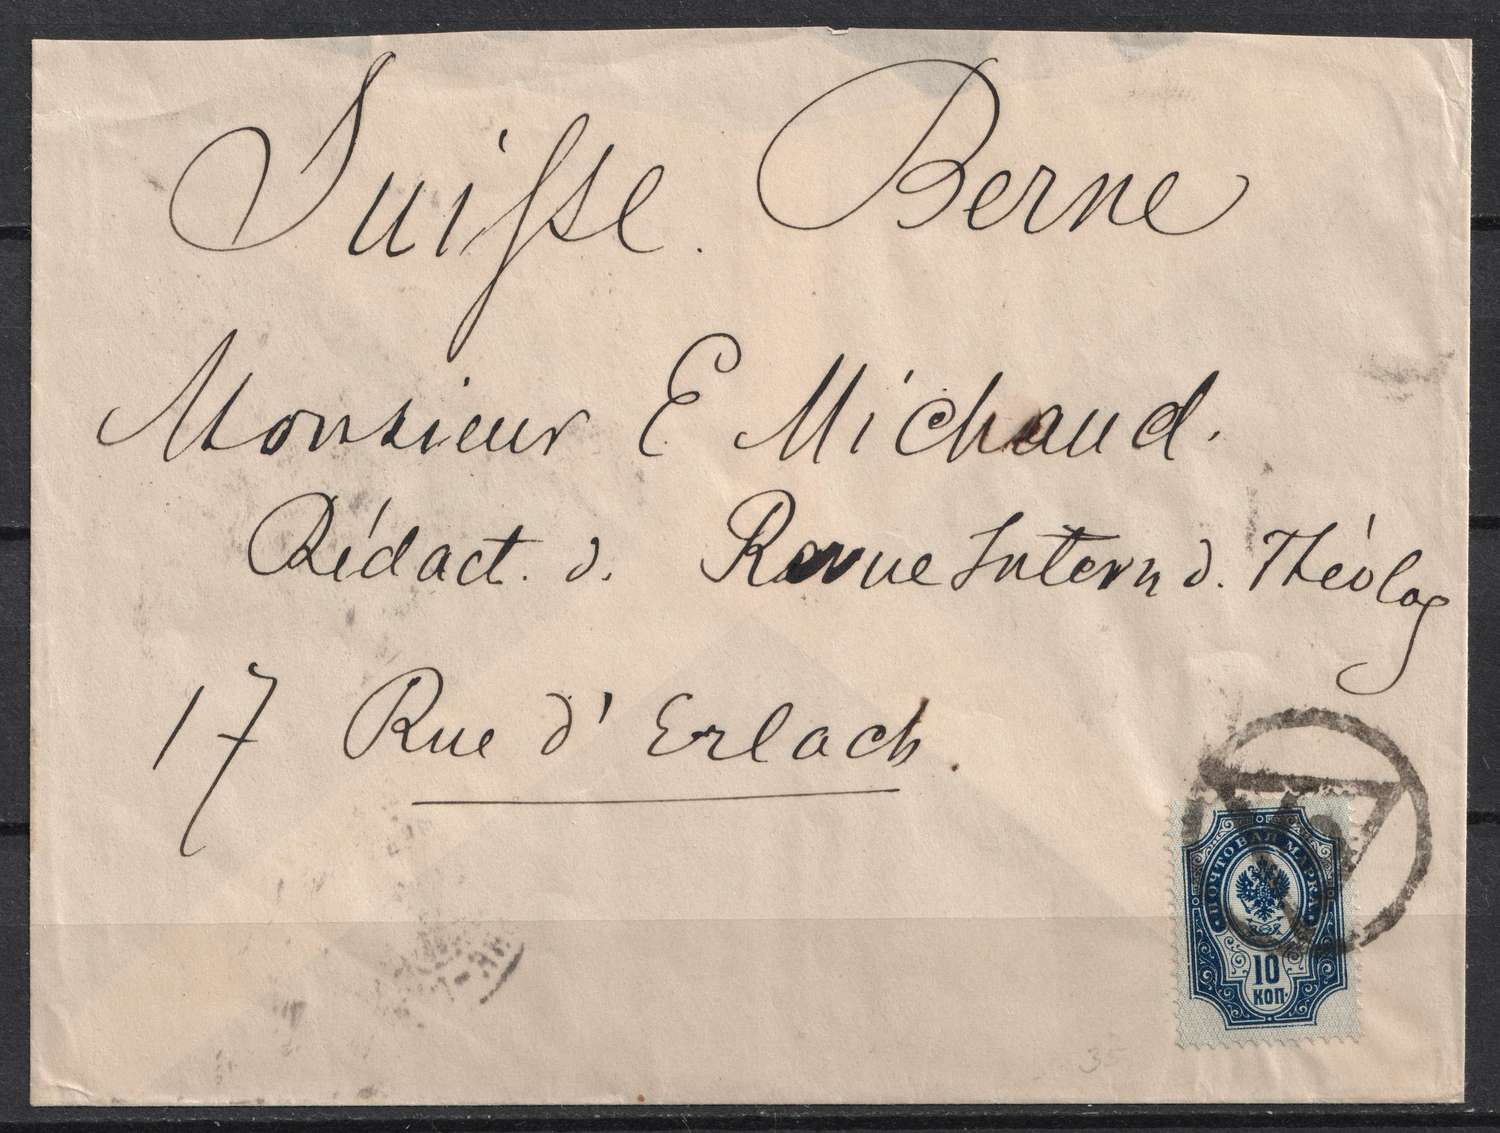 Suisse. Berne
Monsieur E Michaud.
Rédact. d. Revue Intern d. Théolog
17 Rue d'Erlach.
ПОЧТОВАЯ МАРКА
10
КОП.
35